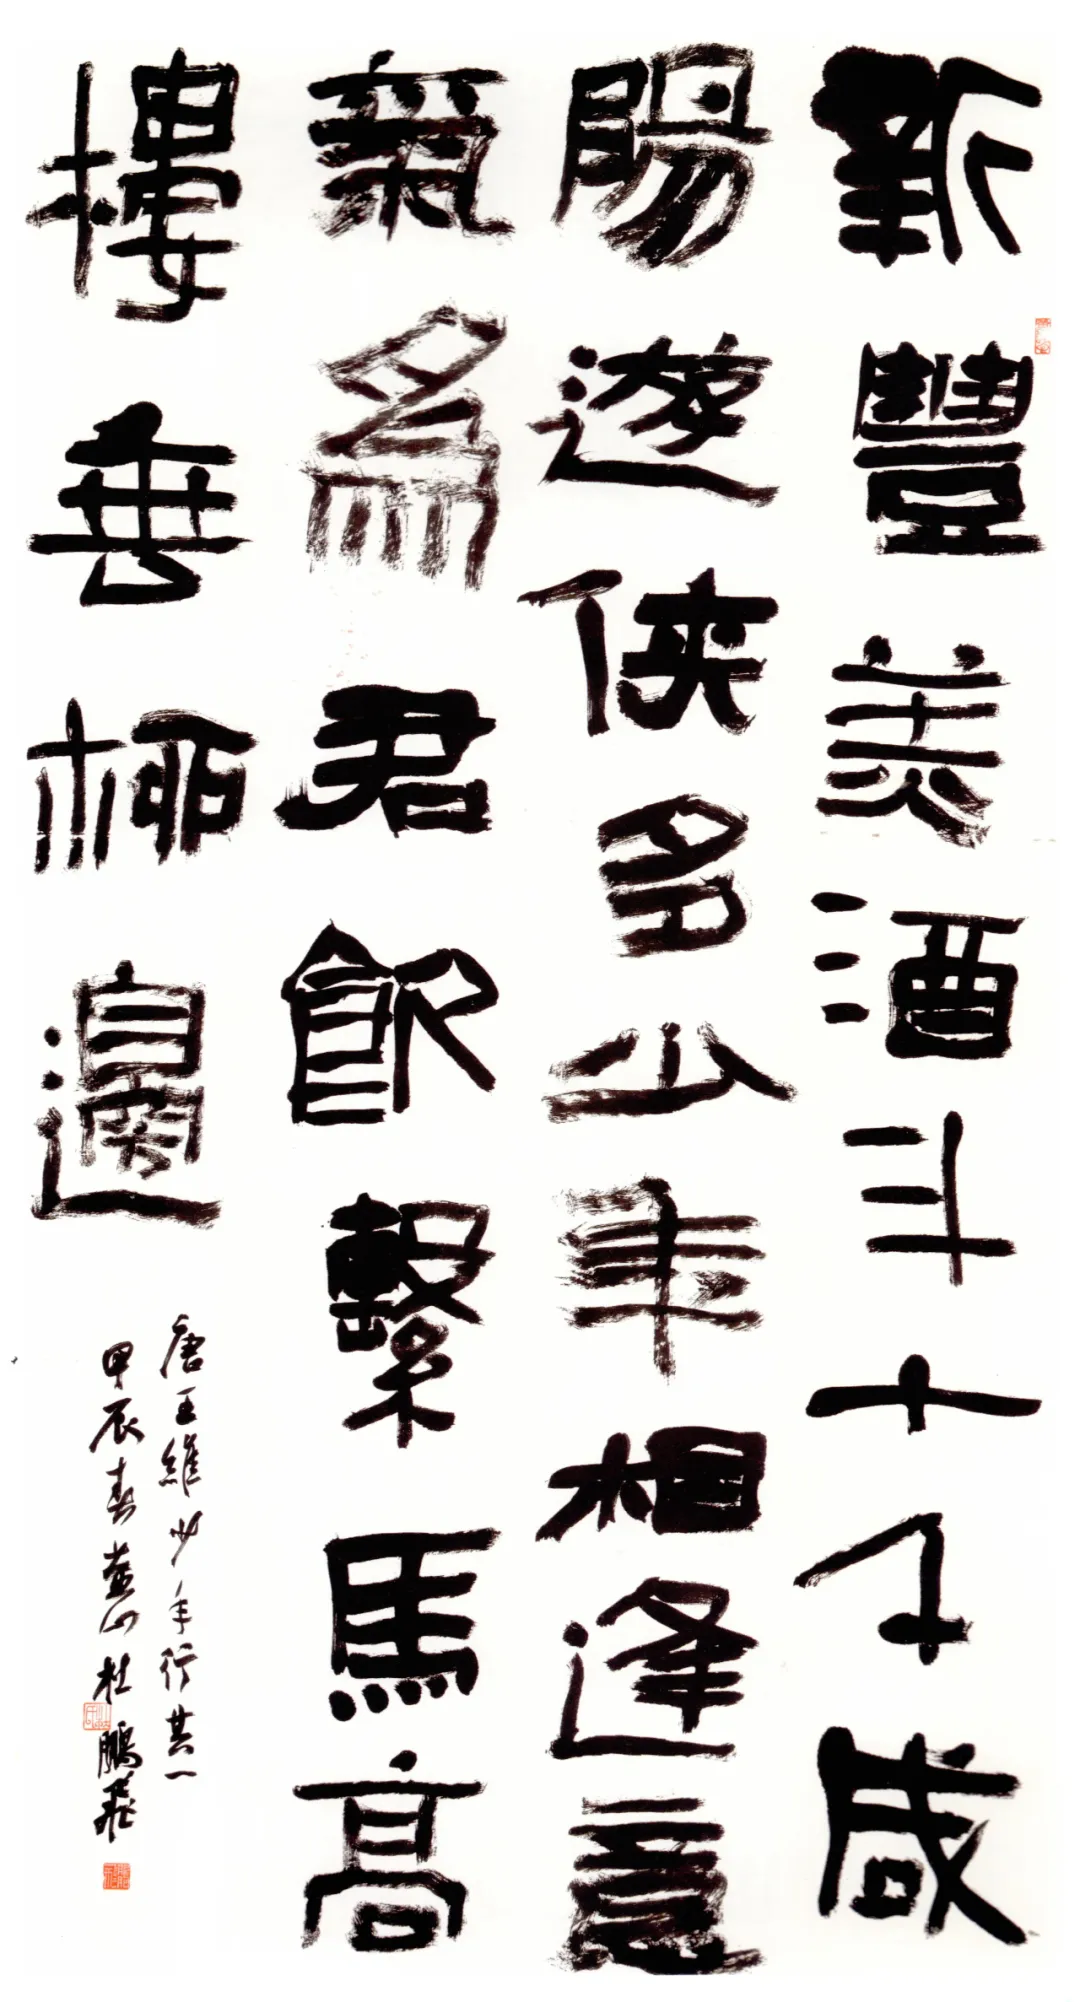 新豐美酒斗十千咸
陽遊俠多少年相逢意
氣為君飲繫馬高
樓垂柳邊
唐王維少年行其一
甲辰春藍山杜鵬飛